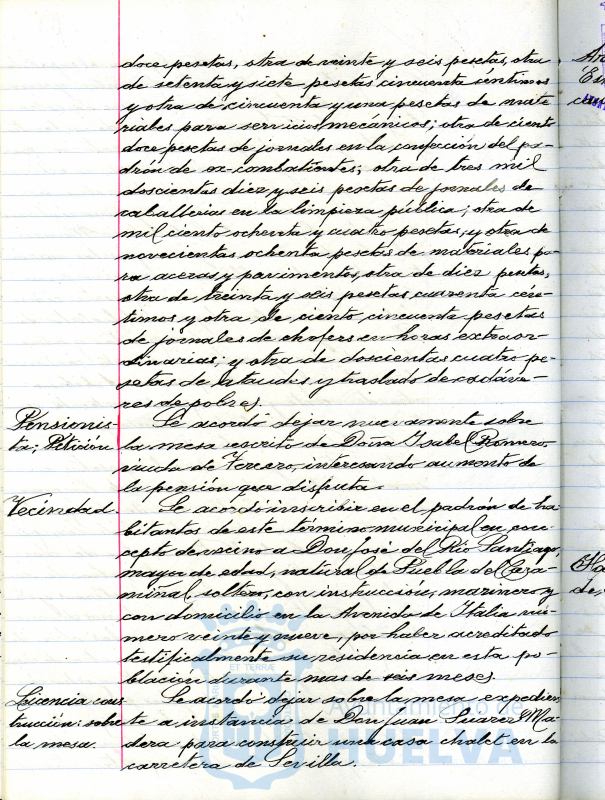 doce pesetas, otra de veinte y seis pesetas, otra
de setenta y siete pesetas cincuenta céntimos
y otra de cincuenta y una pesetas de mate-
riales para servicios mecánicos; otra de ciento
doce pesetas de jornales en la confección del pa-
drón de ex-combatientes; otra de tres mil
doscientas diez y seis pesetas de jornales de
caballerias en la limpieza pública; otra de
mil ciento ochenta y cuatro pesetas, y otra de
novecientas ochenta pesetas de materiales pa-
ra aceras y pavimentos, otra de diez pesetas,
otra de treinta y seis pesetas cuarenta cén-
timos y otra de ciento cincuenta pesetas
de jornales de chofers en horas extraor-
dinarias; y otra de doscientas cuatro pe-
setas de ataudes y traslado de cadáve-
res de pobres.
Pensionis-
ta; Petición
Se acordó dejar nuevamente sobre
la mesa escrito de Doña Isabel Romero,
viuda de Tercero, interesando aumento de
la pensión que disfruta.
Vecindad.
Se acordó inscribir en el padrón de ha-
bitantes de este término municipal en con-
cepto de vecino a Don José del Rio Santiago,
mayor de edad, natural de Puebla del Cara-
miñal, soltero, con instrucción, marinero y
con domicilio en la Avenida de Italia nú-
mero veinte y nueve, por haber acreditado
testificalmente su residencia en esta po-
blación durante mas de seis meses.
Licencia cons-
trucción: sobre
la mesa.
Se acordó dejar sobre la mesa expedien-
te a instancia de Don Juan Suarez Ma-
dera para construir una casa chalet en la
carretera de Sevilla.
Ayuntamiento de
HUELVA